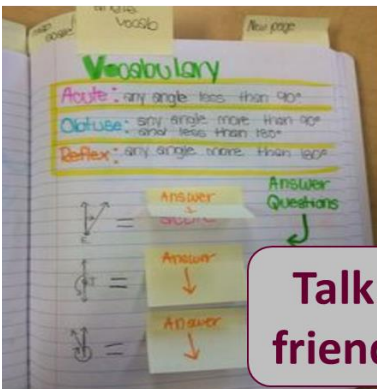 vocab
New page
Vocabulary
Acute: any angle less than 90°
Obtuse: any angle more than 90°
and less than 180°
Reflex: any angle more than 180°
Answer
Questions
Answer
=
Answer
=
Answer
=
Talk
friend